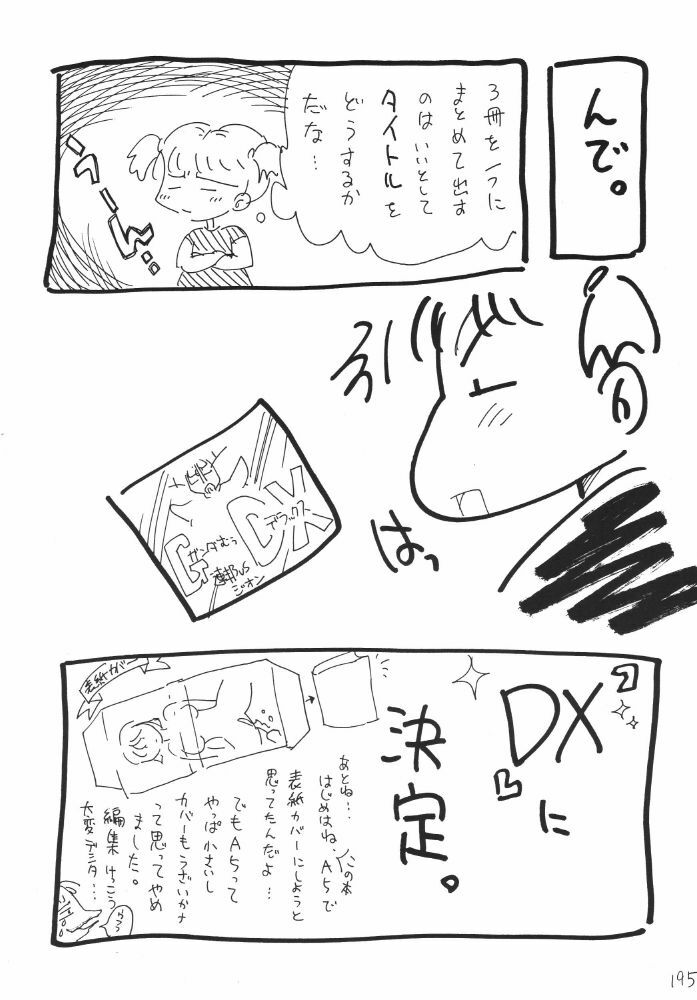 んで。
3冊を1つに
まとめて出す
のはいいとして
タイトルを
どうするか
だな…
うーーん…
はっ
G DX
ガンダむぅ
デラックス
連邦VS
ジオン
『DX』に
決定。
表紙カバー
あとね…この本
はじめはね、A5で
表紙カバーにしようと
思ってたんだよ…
でもA5って
やっぱ小さいし
カバーもうざいかナ
って思ってやめ
ました。
編集けっこう
大変デシタ…
195